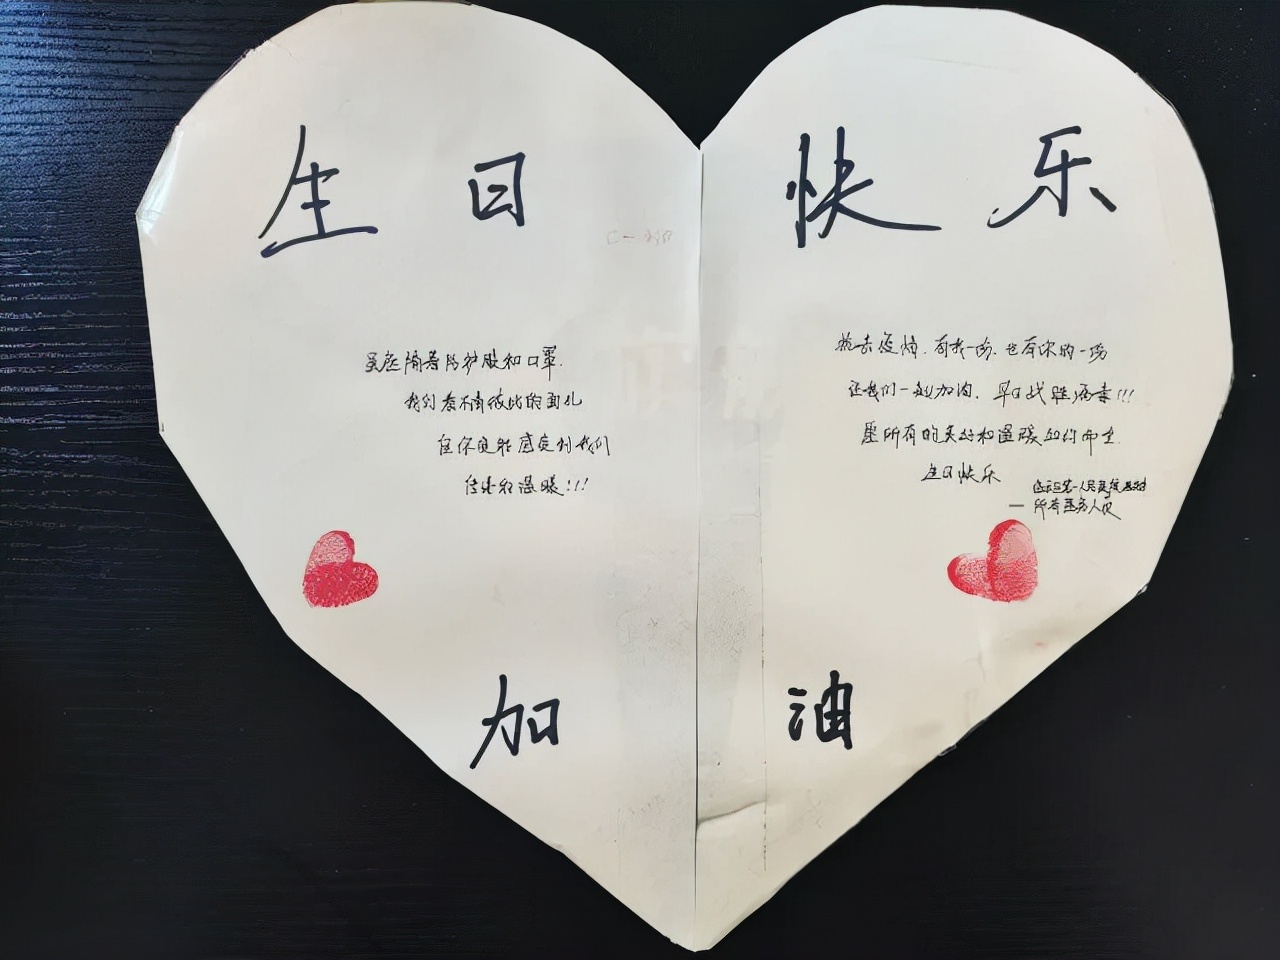 生日快乐
虽然隔着防护服和口罩.
我们看不清彼此的面孔
但你定能感觉到我们
传递的温暖!!!
抗击疫情.有我一份.也有你的一份
让我们一起加油.早日战胜病毒!!!
愿所有的美好和温暖如约而至.
生日快乐
第一人民医院
— 所有医务人员
加油